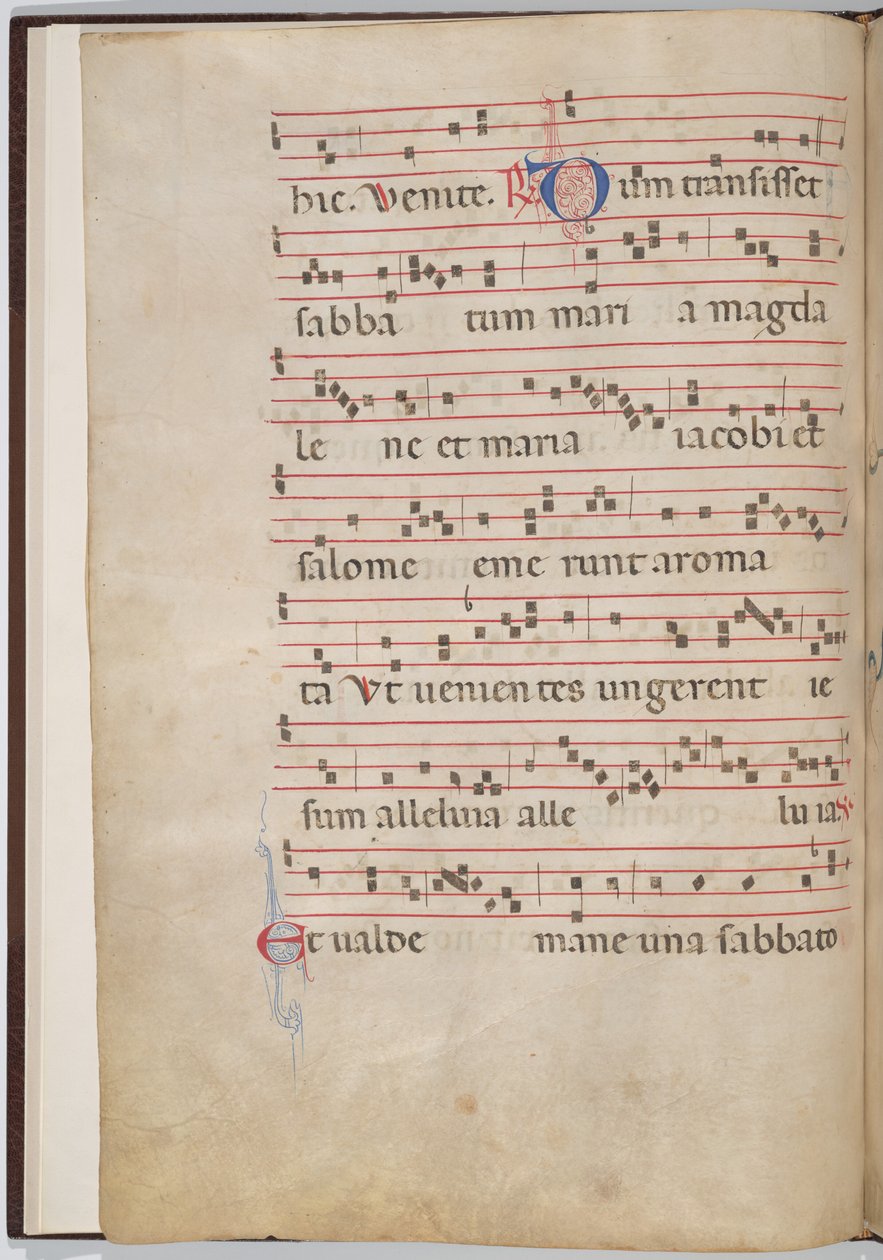 hic. Venite. R. Dum transisset
sabba tum mari a magda
le ne et maria iacobi et
salome eme runt aroma
ta Vt uenientes ungerent ie
sum alleluia alle lu ia. V.
Et ualde mane una sabbato